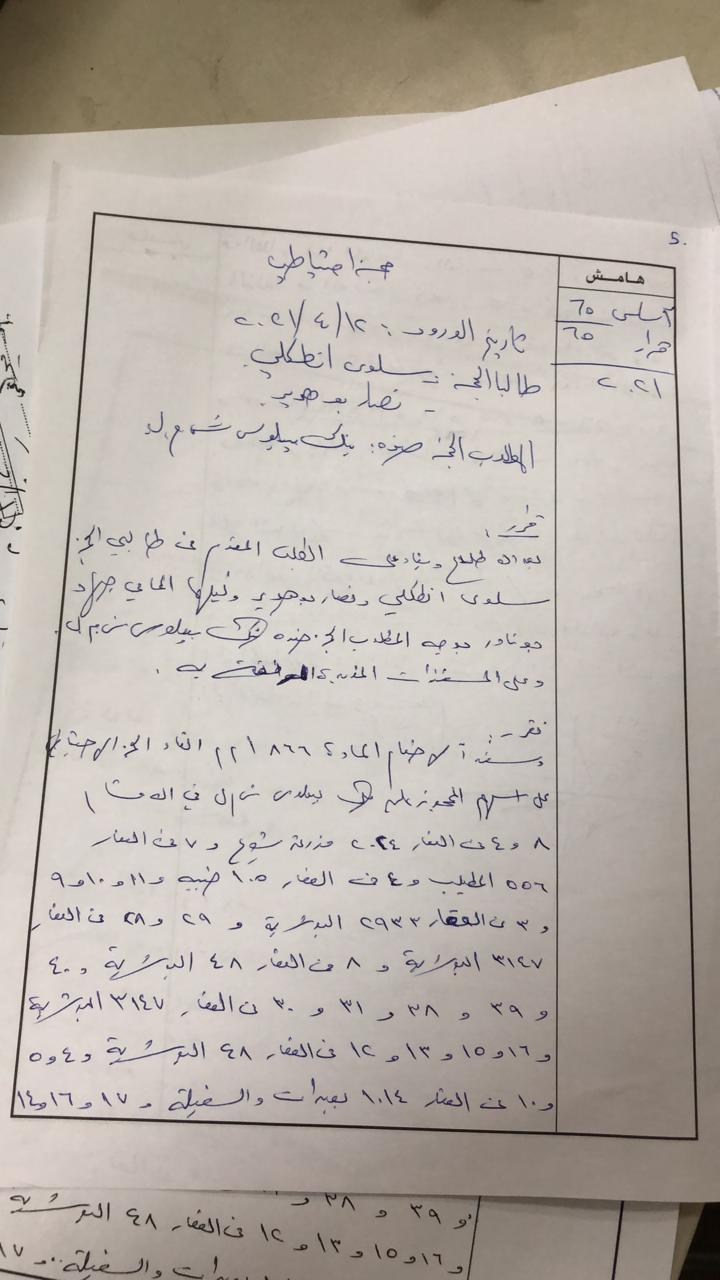 هامش
أساس ٦٥
قرار ٦٥
٢٠٢١
حجز احتياطي
تاريخ الورود: ١٢/٤/٢٠٢١
طالبا الحجز: سلوى انطكلي
- نصار بو هدير
المطلوب الحجز ضده: بنك بيبلوس ش.م.ل
قرار:
بعد الاطلاع وبناء على الطلب المقدم من طالبي الحجز
سلوى انطكلي ونصار بو هدير وكيلها المحامي جهاد
بوجه المطلوب الحجز ضده بنك بيبلوس ش.م.ل.
وعلى المستندات المرفقة به.
نقرر:
وسنداً لاحكام المادة ٨٦٦ أ م م القاء الحجز الاحتياطي
على اسهم المحجوز عليه بنك بيبلوس ش.م.ل في الاقسام
٨ و ٤ من العقار ٢٠٢٤ مزرعة يشوع و ٧ من العقار
٥٥٦ المطيلب و ٤ من العقار ١٠٥ ضبيه و ١١ و ١٠ و ٩
و ٣ من العقار ٢٩٣٣ البوشرية و ٢٩ و ٢٨ من العقار
٣١٤٧ البوشرية و ٨ من العقار ٤٨ البوشرية و ٤٠
و ٣٩ و ٣٨ و ٣١ و ٣٠ من العقار ٣١٤٧ البوشرية
و ١٦ و ١٥ و ١٣ و ١٢ من العقار ٤٨ البوشرية و ٤ و ٥
و ١٠ من العقار ١٠١٤ بعبدات والسفيلة و ١٧ و ١٦ و ١٤
و ٣٩ و ٣٨ و
و ١٦ و ١٥ و ١٣ و ١٢ من العقار ٤٨ البوشرية
والسفيلة و ١٧